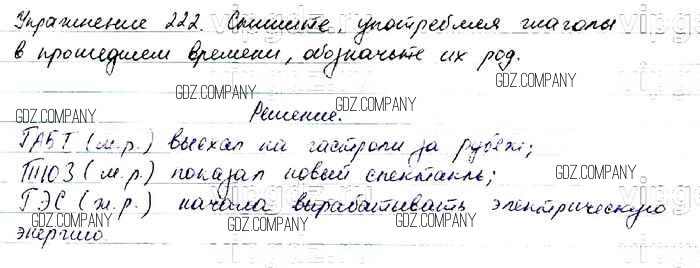 Упражнение 222. Спишите, употребляя глаголы
в прошедшем времени, обозначьте их род.
GDZ.COMPANY
GDZ.COMPANY
GDZ.COMPANY
GDZ.COMPANY
Решение.
ГАБТ (м.р.) выехал на гастроли за рубеж;
GDZ.COMPANY
GDZ.COMPANY
ТЮЗ (м.р.) показал новый спектакль;
GDZ.COMPANY
ГЭС (ж.р.) начала вырабатывать электрическую
GDZ.COMPANY
GDZ.COMPANY
энергию